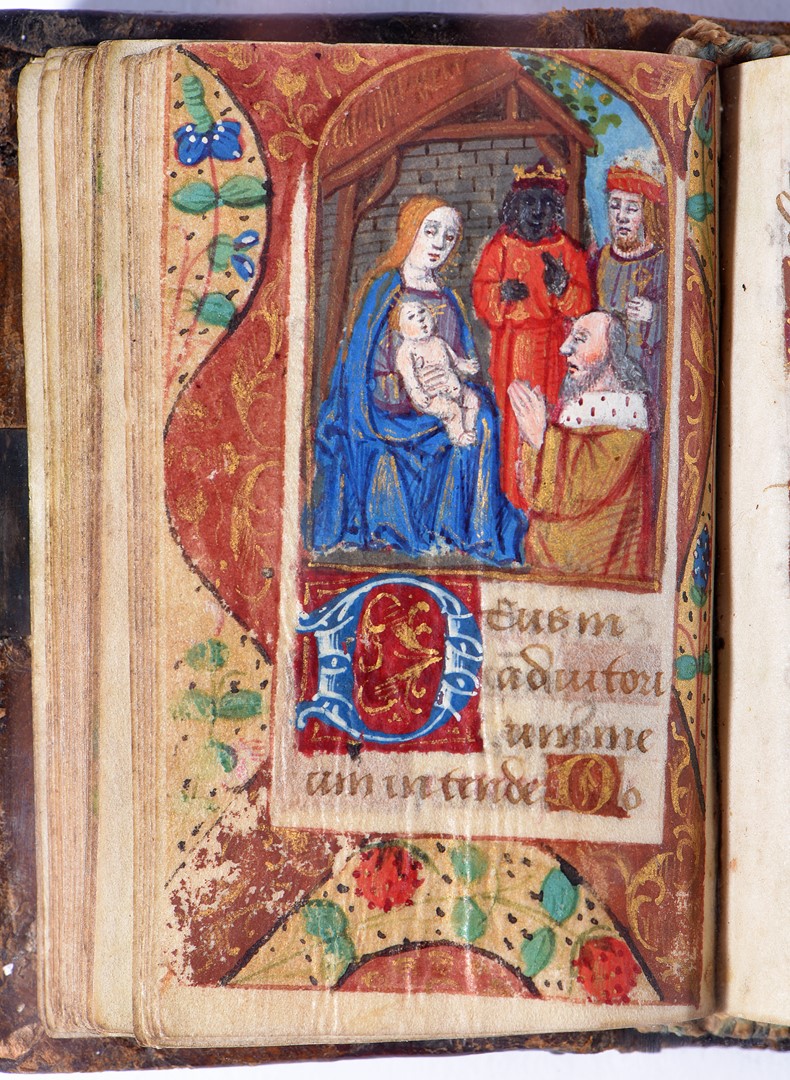 Deus in
adiutori
um me
um intende Do